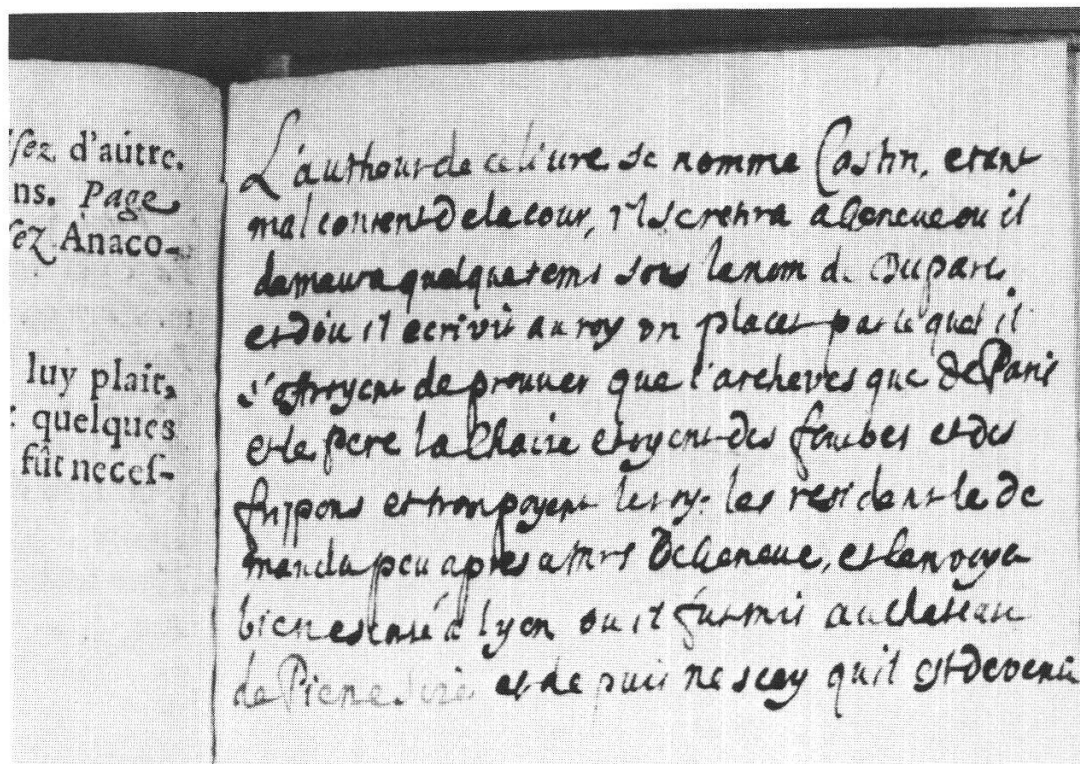 ſez d'autre.
ns. Page
ſez Anaco-
luy plait,
: quelques
fût neceſ-
L'authour de ce liure se nomme Castin, etant
mal content de la cour, il se retira a Geneue ou il
demeura quelque tems sous le nom de Duparc
et d'ou il ecrivit au roy un placet par le quel il
s'ofroyent de prouuer que l'archevesque de Paris
et le pere la Chaise etoyent des fourbes et des
frippons et trompoyent le roy. le resident le de
manda peu apres a Mrs de Geneue, et l'envoya
bien escorté à Lyon ou il fut mis au chateau
de Piene Scize et de puis ne scay qu'il est devenu